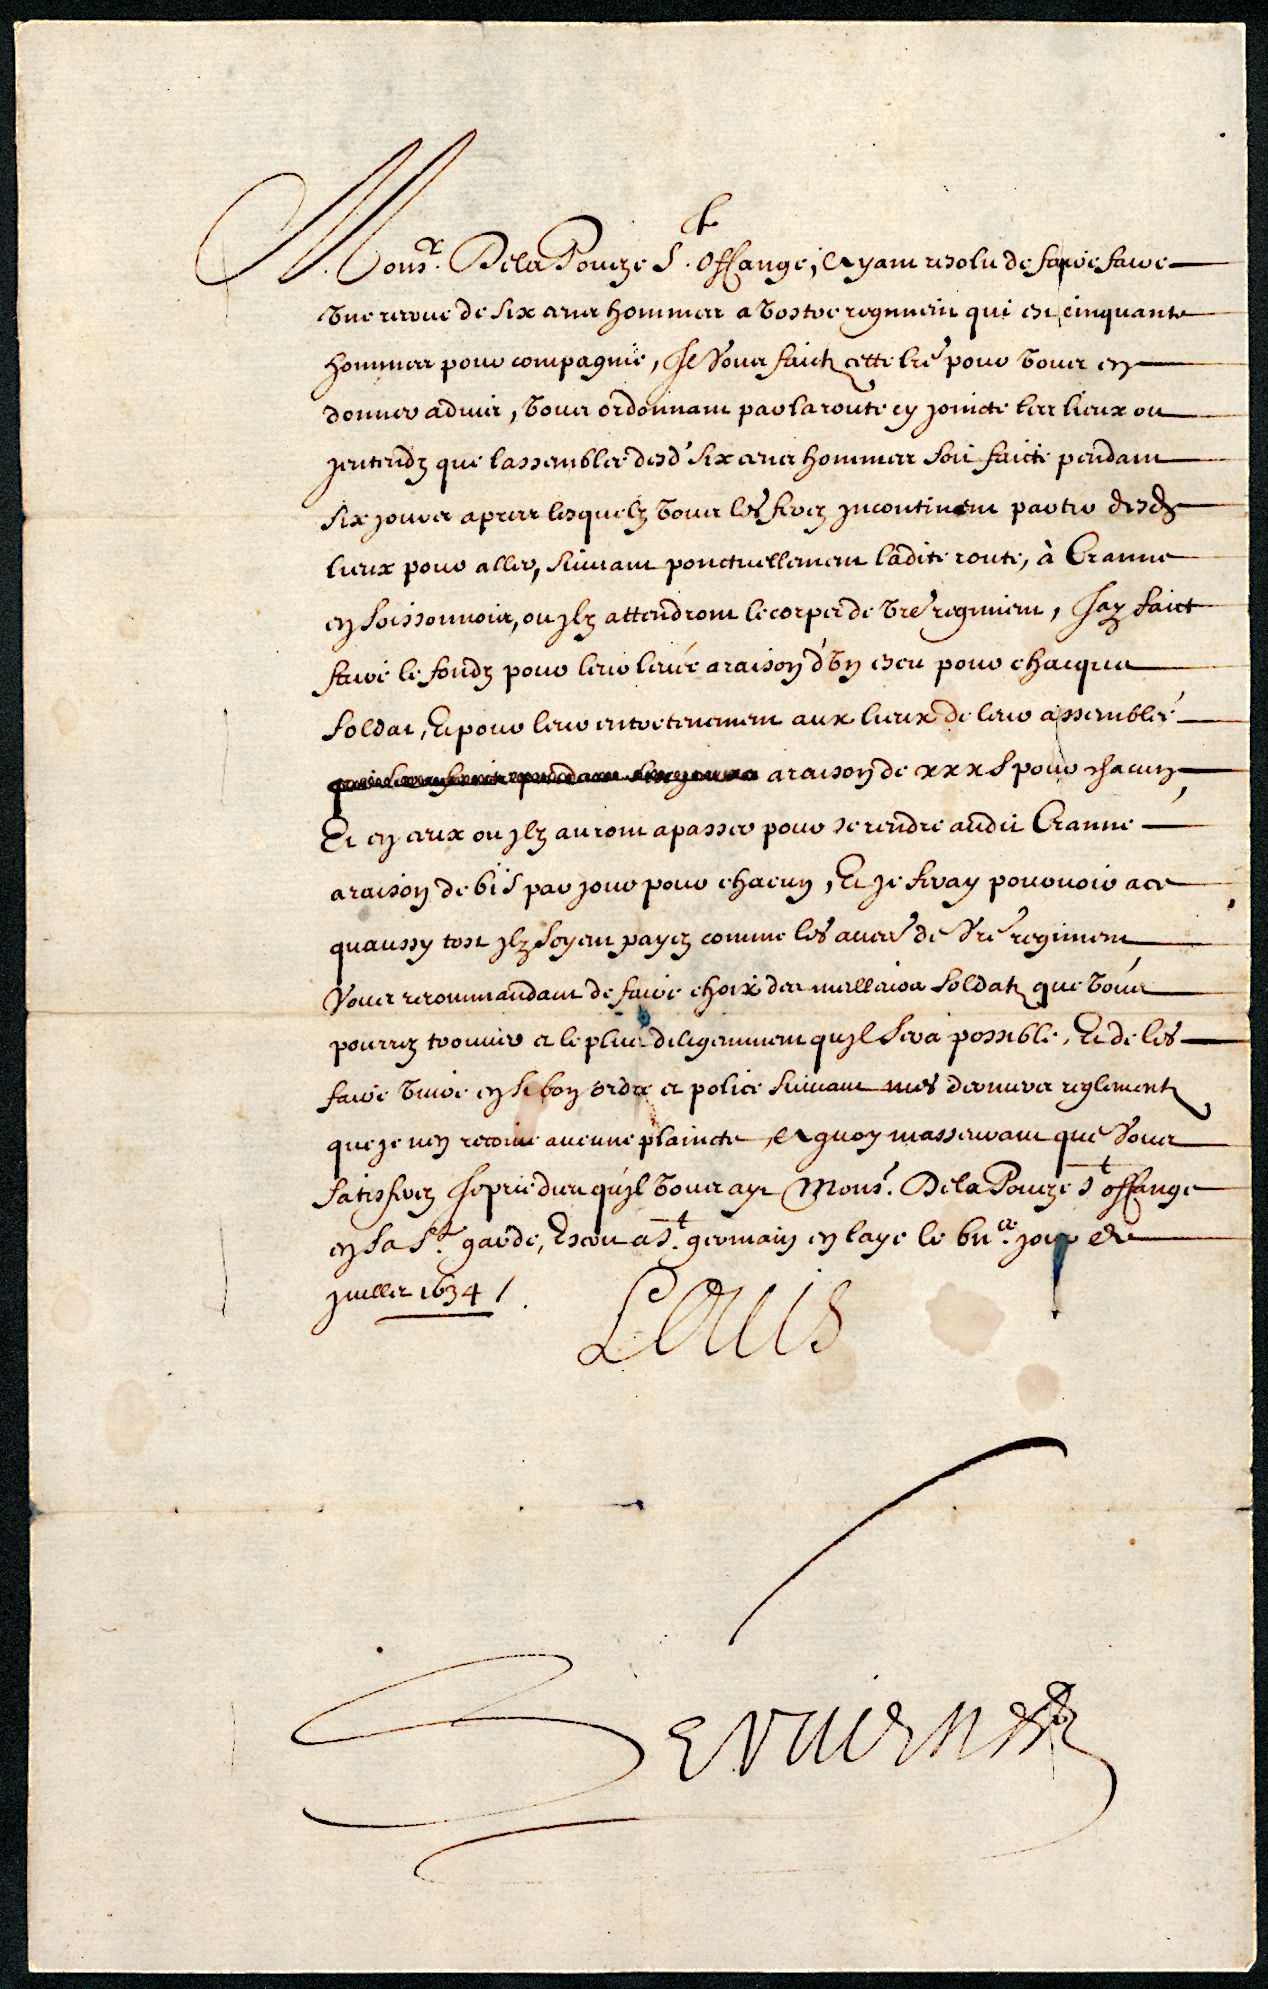 Monsr. De la Poueze St. Offange, Ayant resolu de faire faire
une recreue de six cens hommes a vostre regiment qui est cinquante
hommes pour compagnie, Je vous faictz cette lre pour vous en
donner advis, vous ordonnant par la route cy joincte les lieux ou
jentendz que lassemblée desd. six cens hommes soit faicte pendant
six jours apres lesquelz vous les ferez incontinent partir desdz
lieux pour aller, suivant ponctuellement ladite route, à Cranne
en soissonnois, ou jlz attendront le corps de vre regiment, Jay faict
faire le fondz pour leur levée a raison d'un escu pour chacque
soldat, Et pour leur entretenement aux lieux de leur assemblée
a raison de xxx s pour chacun,
Et en ceux ou jlz auront a passer pour se rendre audit Cranne
a raison de vi s par jour pour chacun, Et je feray pourvoir a ce
quaussy tost jlz soyent payez comme les autres de vre regiment
Vous recommandant de faire choix des meilleurs soldatz que vous
pourrez trouver et le plus diligemment qujl sera possible, Et de les
faire vivre en si bon ordre et police suivant mes derniers reglementz
que je nen recoive aucune plaincte, A quoy masseurant que vous
satisferez Je prie dieu qu'jl vous ayt Monsr. De la Poueze St offange
en sa Ste. garde, Escrit a St. germain en laye le vije. jour de
juillet 1634 /.
Louis
Servient